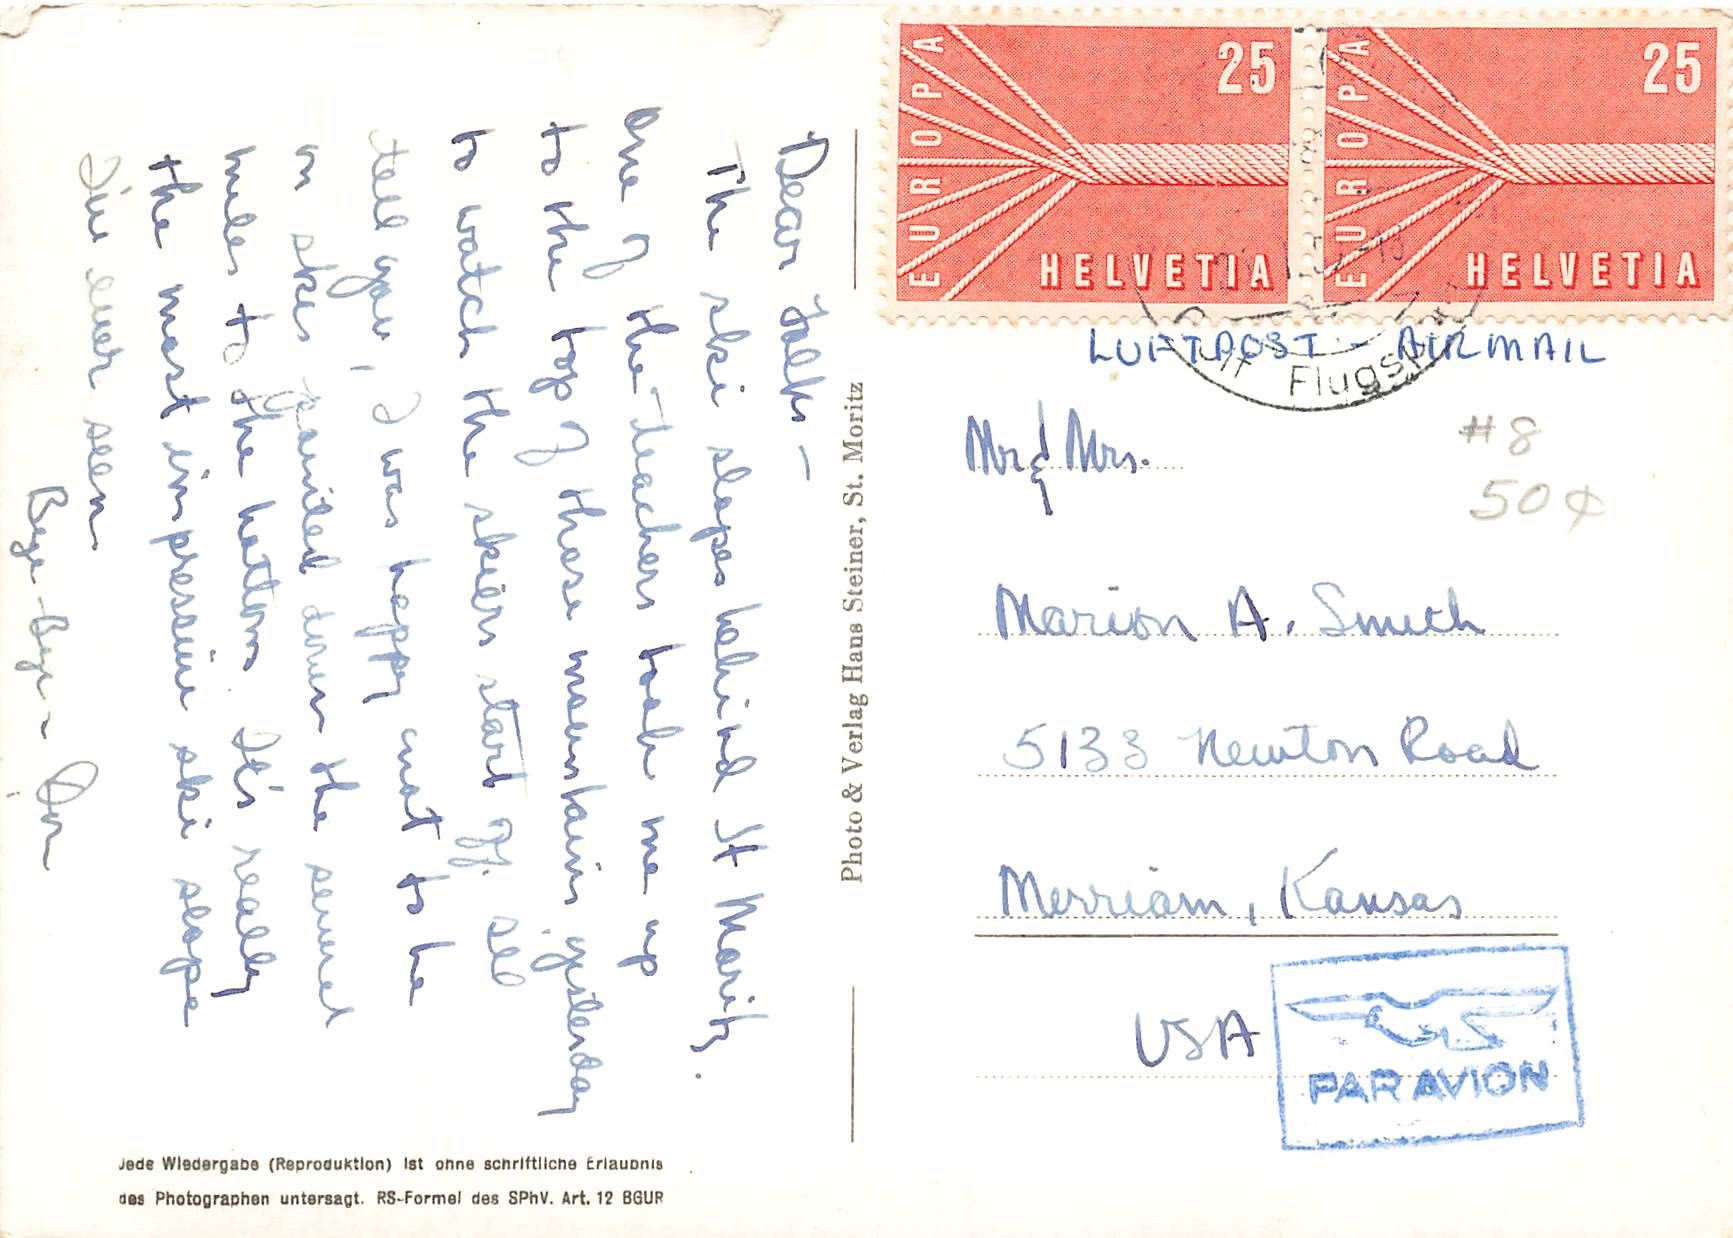 Dear Folks -
The ski slopes behind St Moritz.
One of the teachers took me up
to the top of these mountains yesterday
to watch the skiers start off. I'll
tell you, I was happy not to be
on skis pointed down the several
miles to the bottom. It's really
the most impressive ski slope
I've ever seen
Bye-Bye -
Photo & Verlag Hans Steiner, St. Moritz
Jede Wiedergabe (Reproduktion) ist ohne schriftliche Erlaubnis
des Photographen untersagt. RS-Formel des SPhV. Art. 12 BGUR
EUROPA 25 HELVETIA
EUROPA 25 HELVETIA
LUFTPOST - AIRMAIL
#8
50¢
Mr & Mrs.
Marion A. Smith
5133 Newton Road
Merriam, Kansas
USA
PAR AVION